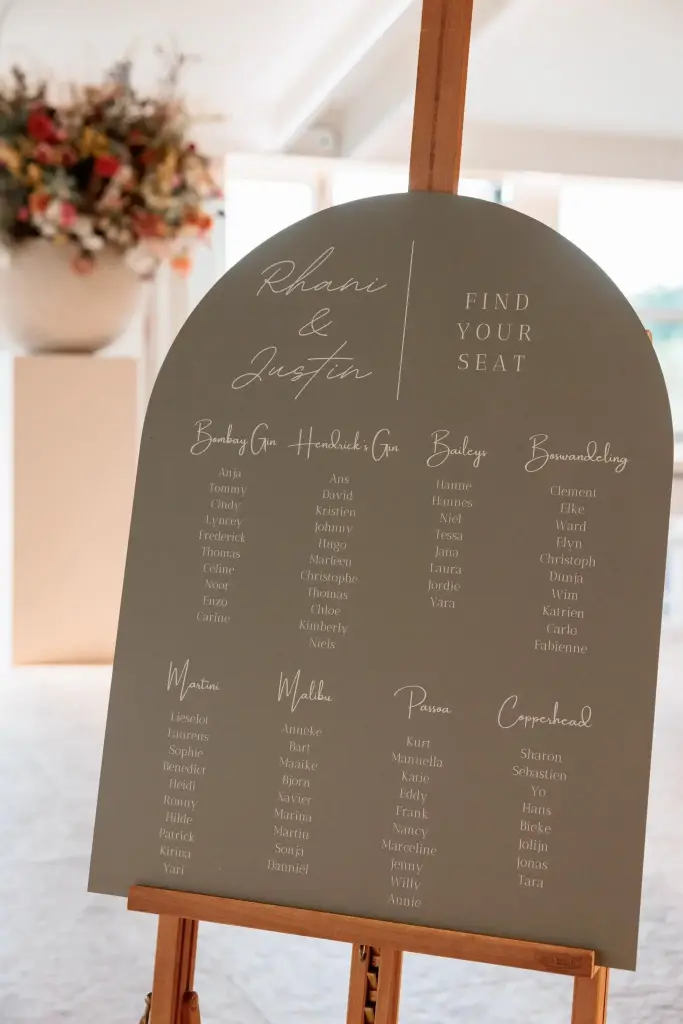 Rhani
&
Justin
FIND
YOUR
SEAT
Bombay Gin
Anja
Tommy
Cindy
Lyncey
Frederick
Thomas
Céline
Noor
Enzo
Carine
Hendrick's Gin
Ans
David
Kristien
Johnny
Hugo
Marleen
Christophe
Thomas
Chloe
Kimberly
Niels
Baileys
Hanne
Hannes
Niel
Tessa
Jana
Laura
Jordie
Yara
Boswandeling
Clement
Elke
Ward
Elyn
Christoph
Dunja
Wim
Katrien
Carlo
Fabienne
Martini
Lieselot
Laurens
Sophie
Benedict
Heidi
Ronny
Hilde
Patrick
Kirina
Yari
Malibu
Anneke
Bart
Maaike
Bjorn
Xavier
Marina
Martin
Sonja
Danniël
Passoa
Kurt
Manuella
Katie
Eddy
Frank
Nancy
Marceline
Jenny
Willy
Annie
Copperhead
Sharon
Sebastien
Yo
Hans
Bieke
Jolijn
Jonas
Tara